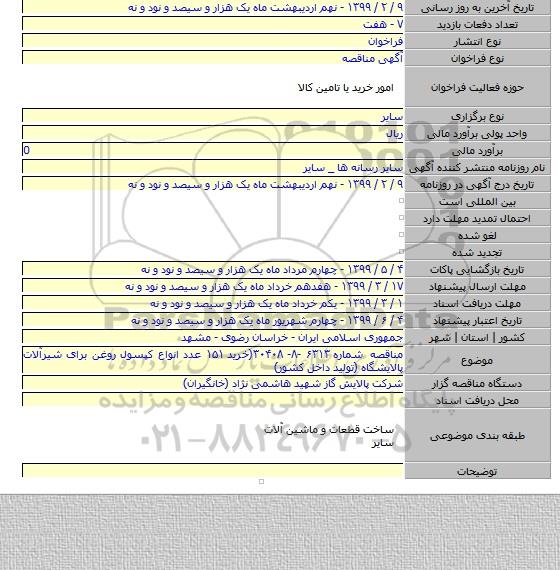 تاریخ آخرین به روز رسانی ۹ / ۲ / ۱۳۹۹ - نهم اردیبهشت ماه یک هزار و سیصد و نود و نه
تعداد دفعات بازدید ۷ - هفت
نوع انتشار فراخوان
نوع فراخوان آگهی مناقصه
حوزه فعالیت فراخوان امور خرید یا تامین کالا
نوع برگزاری سایر
واحد پولی برآورد مالی ریال
برآورد مالی 0
نام روزنامه منتشر کننده آگهی سایر رسانه ها _ سایر
تاریخ درج آگهی در روزنامه ۹ / ۲ / ۱۳۹۹ - نهم اردیبهشت ماه یک هزار و سیصد و نود و نه
بین المللی است
احتمال تمدید مهلت دارد
لغو شده
تجدید شده
تاریخ بازگشایی پاکات ۴ / ۵ / ۱۳۹۹ - چهارم مرداد ماه یک هزار و سیصد و نود و نه
مهلت ارسال پیشنهاد ۱۷ / ۳ / ۱۳۹۹ - هفدهم خرداد ماه یک هزار و سیصد و نود و نه
مهلت دریافت اسناد ۱ / ۳ / ۱۳۹۹ - یکم خرداد ماه یک هزار و سیصد و نود و نه
تاریخ اعتبار پیشنهاد ۴ / ۶ / ۱۳۹۹ - چهارم شهریور ماه یک هزار و سیصد و نود و نه
کشور | استان | شهر جمهوری اسلامی ایران - خراسان رضوی - مشهد
موضوع مناقصه شماره ۶۳۱۳ -۸- ۳۰۴۰۸(خرید ۱۵۱ عدد انواع کپسول روغن برای شیرآلات
پالایشگاه (تولید داخل کشور)
دستگاه مناقصه گزار شرکت پالایش گاز شهید هاشمی نژاد (خانگیران)
محل دریافت اسناد
طبقه بندی موضوعی ساخت قطعات و ماشین آلات
سایر
توضیحات
ParsNamadData
پایگاه اطلاع رسانی مناقصه و مزایده
۰۲۱-۸۸۳۴۹۶۷۰-۵